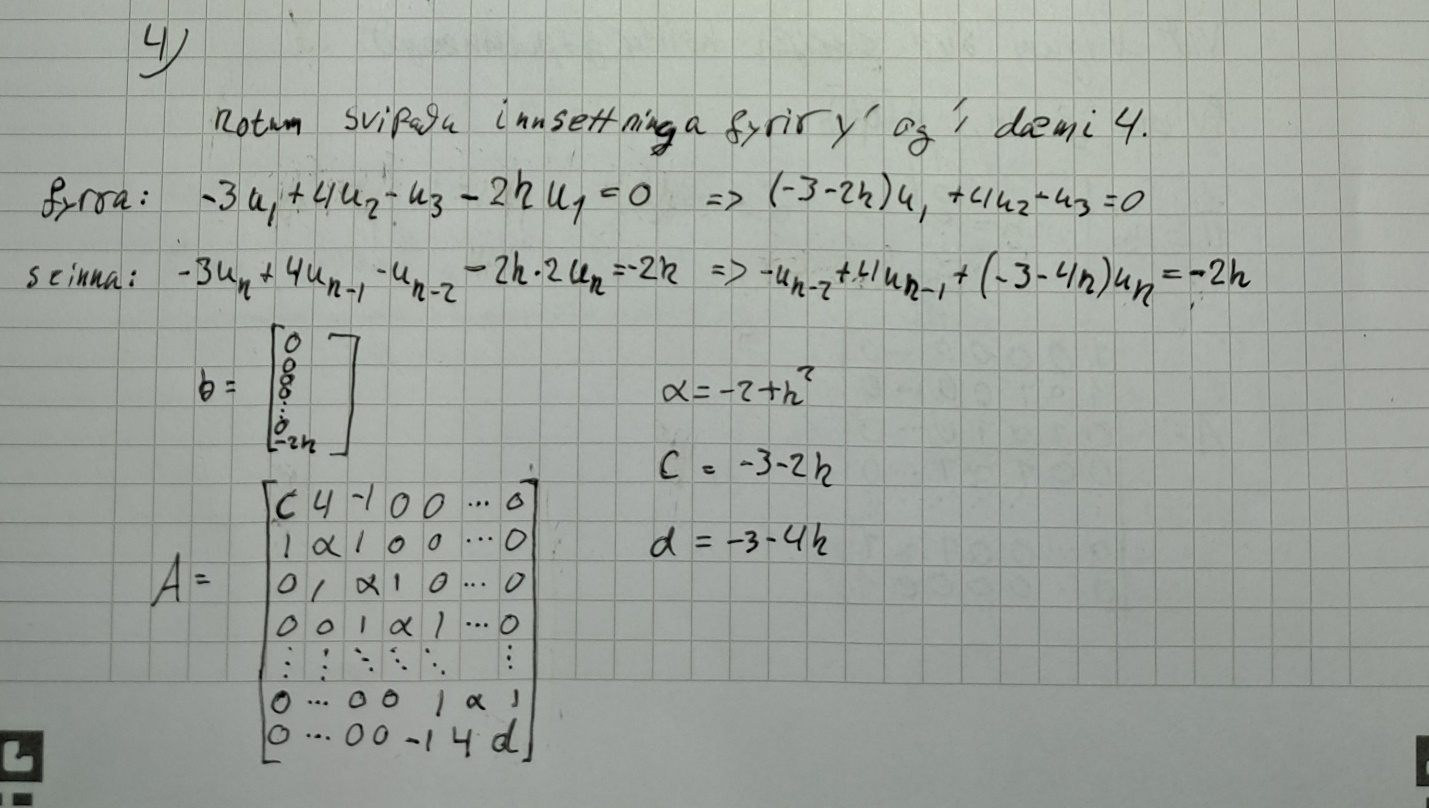 4)
Notum svipaða innsettninga fyrir y' og í dæmi 4.
fyrra: -3u₁ + 4u₂ - u₃ - 2h u₁ = 0 => (-3-2h)u₁ + 4u₂ - u₃ = 0
seinna: -3uₙ + 4uₙ₋₁ - uₙ₋₂ - 2h·2uₙ = -2h => -uₙ₋₂ + 4uₙ₋₁ + (-3-4h)uₙ = -2h
b = [0 0 0 0 ⋮ 0 -2h]
α = -2+h²
c = -3-2h
d = -3-4h
A =
c 4 -1 0 0 ... 0
1 α 1 0 0 ... 0
0 1 α 1 0 ... 0
0 0 1 α 1 ... 0
⋮ ⋮ ⋱ ⋱ ⋱ ⋮
0 ... 0 0 1 α 1
0 ... 0 0 -1 4 d